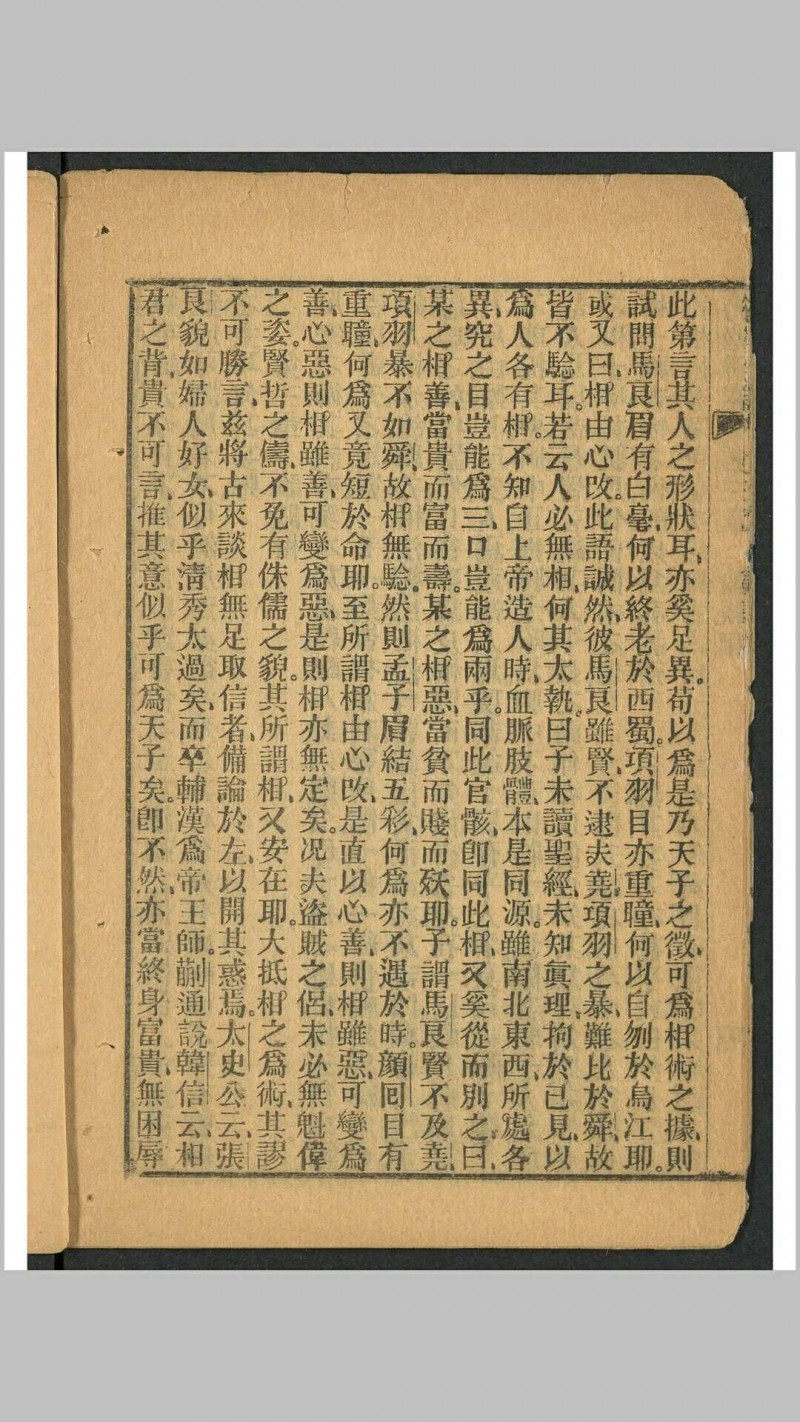 此第言其人之形狀耳、亦奚足異。苟以爲是乃天子之徵、可爲相術之據、則
試問馬良眉有白毫、何以終老於西蜀。項羽目亦重瞳、何以自刎於烏江耶。
或又曰、相由心改。此語誠然、彼馬良雖賢、不逮夫堯、項羽之暴、難比於舜、故
皆不驗耳。若云人必無相、何其太執。曰子未讀聖經、未知眞理、拘於己見、以
爲人各有相。不知自上帝造人時、血脈肢體、本是同源。雖南北東西、所處各
異、究之目豈能爲三、口豈能爲兩乎。同此官骸、卽同此相、又奚從而別之、曰、
某之相善、當貴而富而壽。某之相惡、當貧而賤而殀耶。子謂馬良賢不及堯、
項羽暴不如舜、故相無驗。然則孟子眉結五彩、何爲亦不遇於時。顏回目有
重瞳、何爲又竟短於命耶。至所謂相由心改、是直以心善、則相雖惡、可變爲
善、心惡則相雖善、可變爲惡、是則相亦無定矣。况夫盜賊之侶、未必無魁偉
之姿。賢哲之儔、不免有侏儒之貌。其所謂相、又安在耶。大抵相之爲術、其謬
不可勝言、兹將古來談相、無足取信者、備論於左、以開其惑焉。太史公云、張
良貌如婦人好女、似乎淸秀太過矣、而卒輔漢爲帝王師。蒯通說韓信云、相
君之背、貴不可言、推其意似乎可爲天子矣。卽不然、亦當終身富貴、無困辱